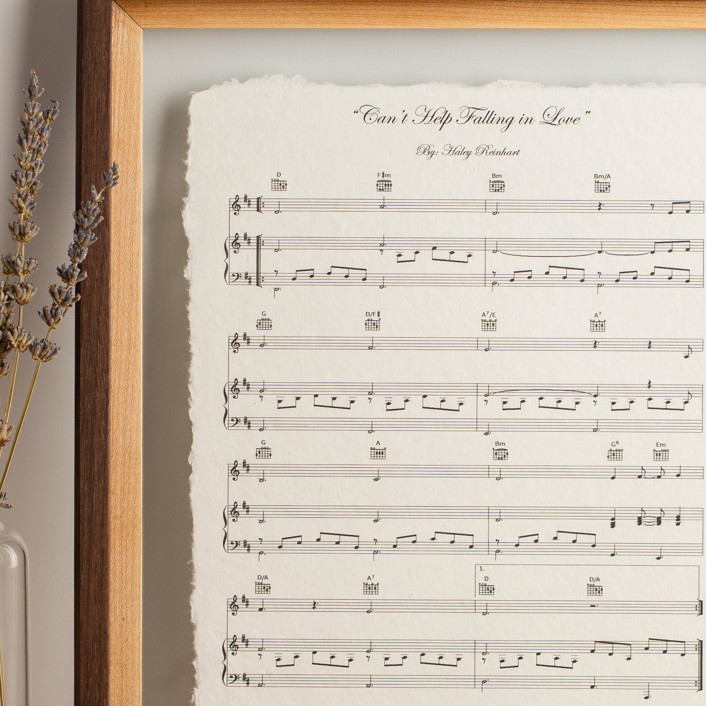 "Can't Help Falling in Love"
By: Haley Reinhart
D F♯m Bm Bm/A
G D/F♯ A7/E A7
G A Bm G6 Em
1.
D/A A7 D D/A